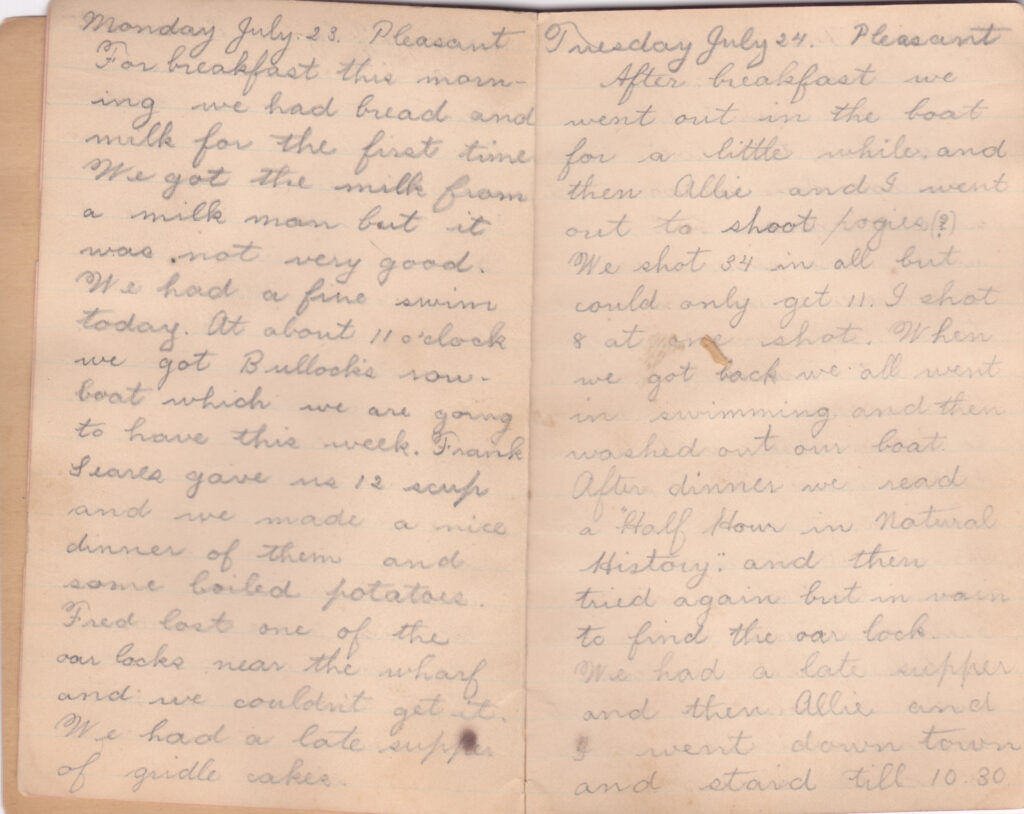 Monday July. 23. Pleasant
For breakfast this morn-
ing we had bread and
milk for the first time
We got the milk from
a milk man but it
was not very good.
We had a fine swim
today. At about 11 o'clock
we got Bullock's row-
boat which we are going
to have this week. Frank
Seares gave us 12 scup
and we made a nice
dinner of them and
some boiled potatoes.
Fred lost one of the
oar locks near the wharf
and we couldn't get it.
We had a late supper
of gridle cakes.
Tuesday July 24. Pleasant
After breakfast we
went out in the boat
for a little while, and
then Allie and I went
out to shoot pogies (?)
We shot 34 in all but
could only get 11. I shot
8 at one shot. When
we got back we all went
in swimming and then
washed out our boat.
After dinner we read
a "Half Hour in Natural
History". and then
tried again but in vain
to find the oar lock.
We had a late supper
and then Allie and
I went down town
and staid till 10.30